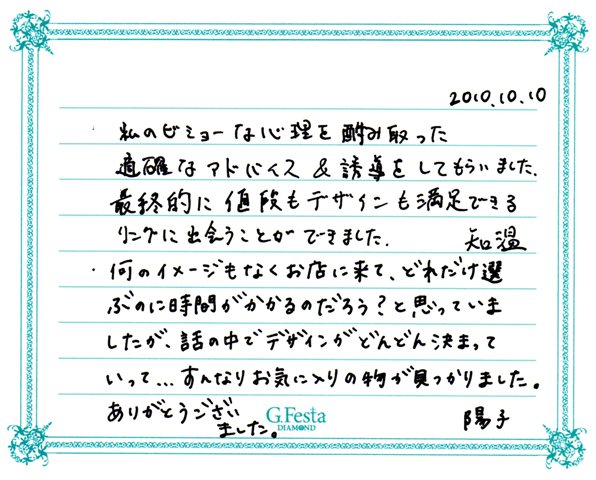 2010.10.10
・私のビミョーな心理を酌み取った
適確なアドバイス&誘導をしてもらいました.
最終的に値段もデザインも満足できる
リングに出会うことができました. 知温
・何のイメージもなくお店に来て、どれだけ選
ぶのに時間がかかるのだろう?と思っていま
したが、話の中でデザインがどんどん決まって
いって...すんなりお気に入りの物が見つかりました。
ありがとうござい
ました。
G.Festa
DIAMOND
陽子